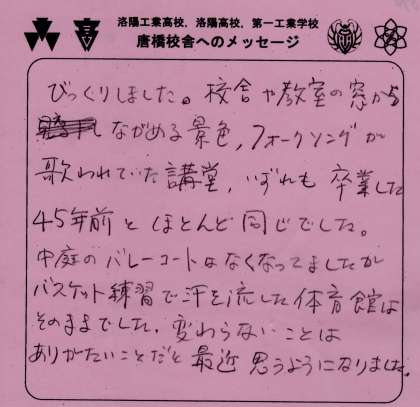 洛陽工業高校，洛陽高校，第一工業学校
唐橋校舎へのメッセージ
びっくりしました。校舎や教室の窓から
ながめる景色，フォークソングが
歌われていた講堂，いずれも卒業した
45年前とほとんど同じでした。
中庭のバレーコートはなくなってましたが
バスケット練習で汗を流した体育館は
そのままでした．変わらないことは
ありがたいことだと最近思うようになりました。